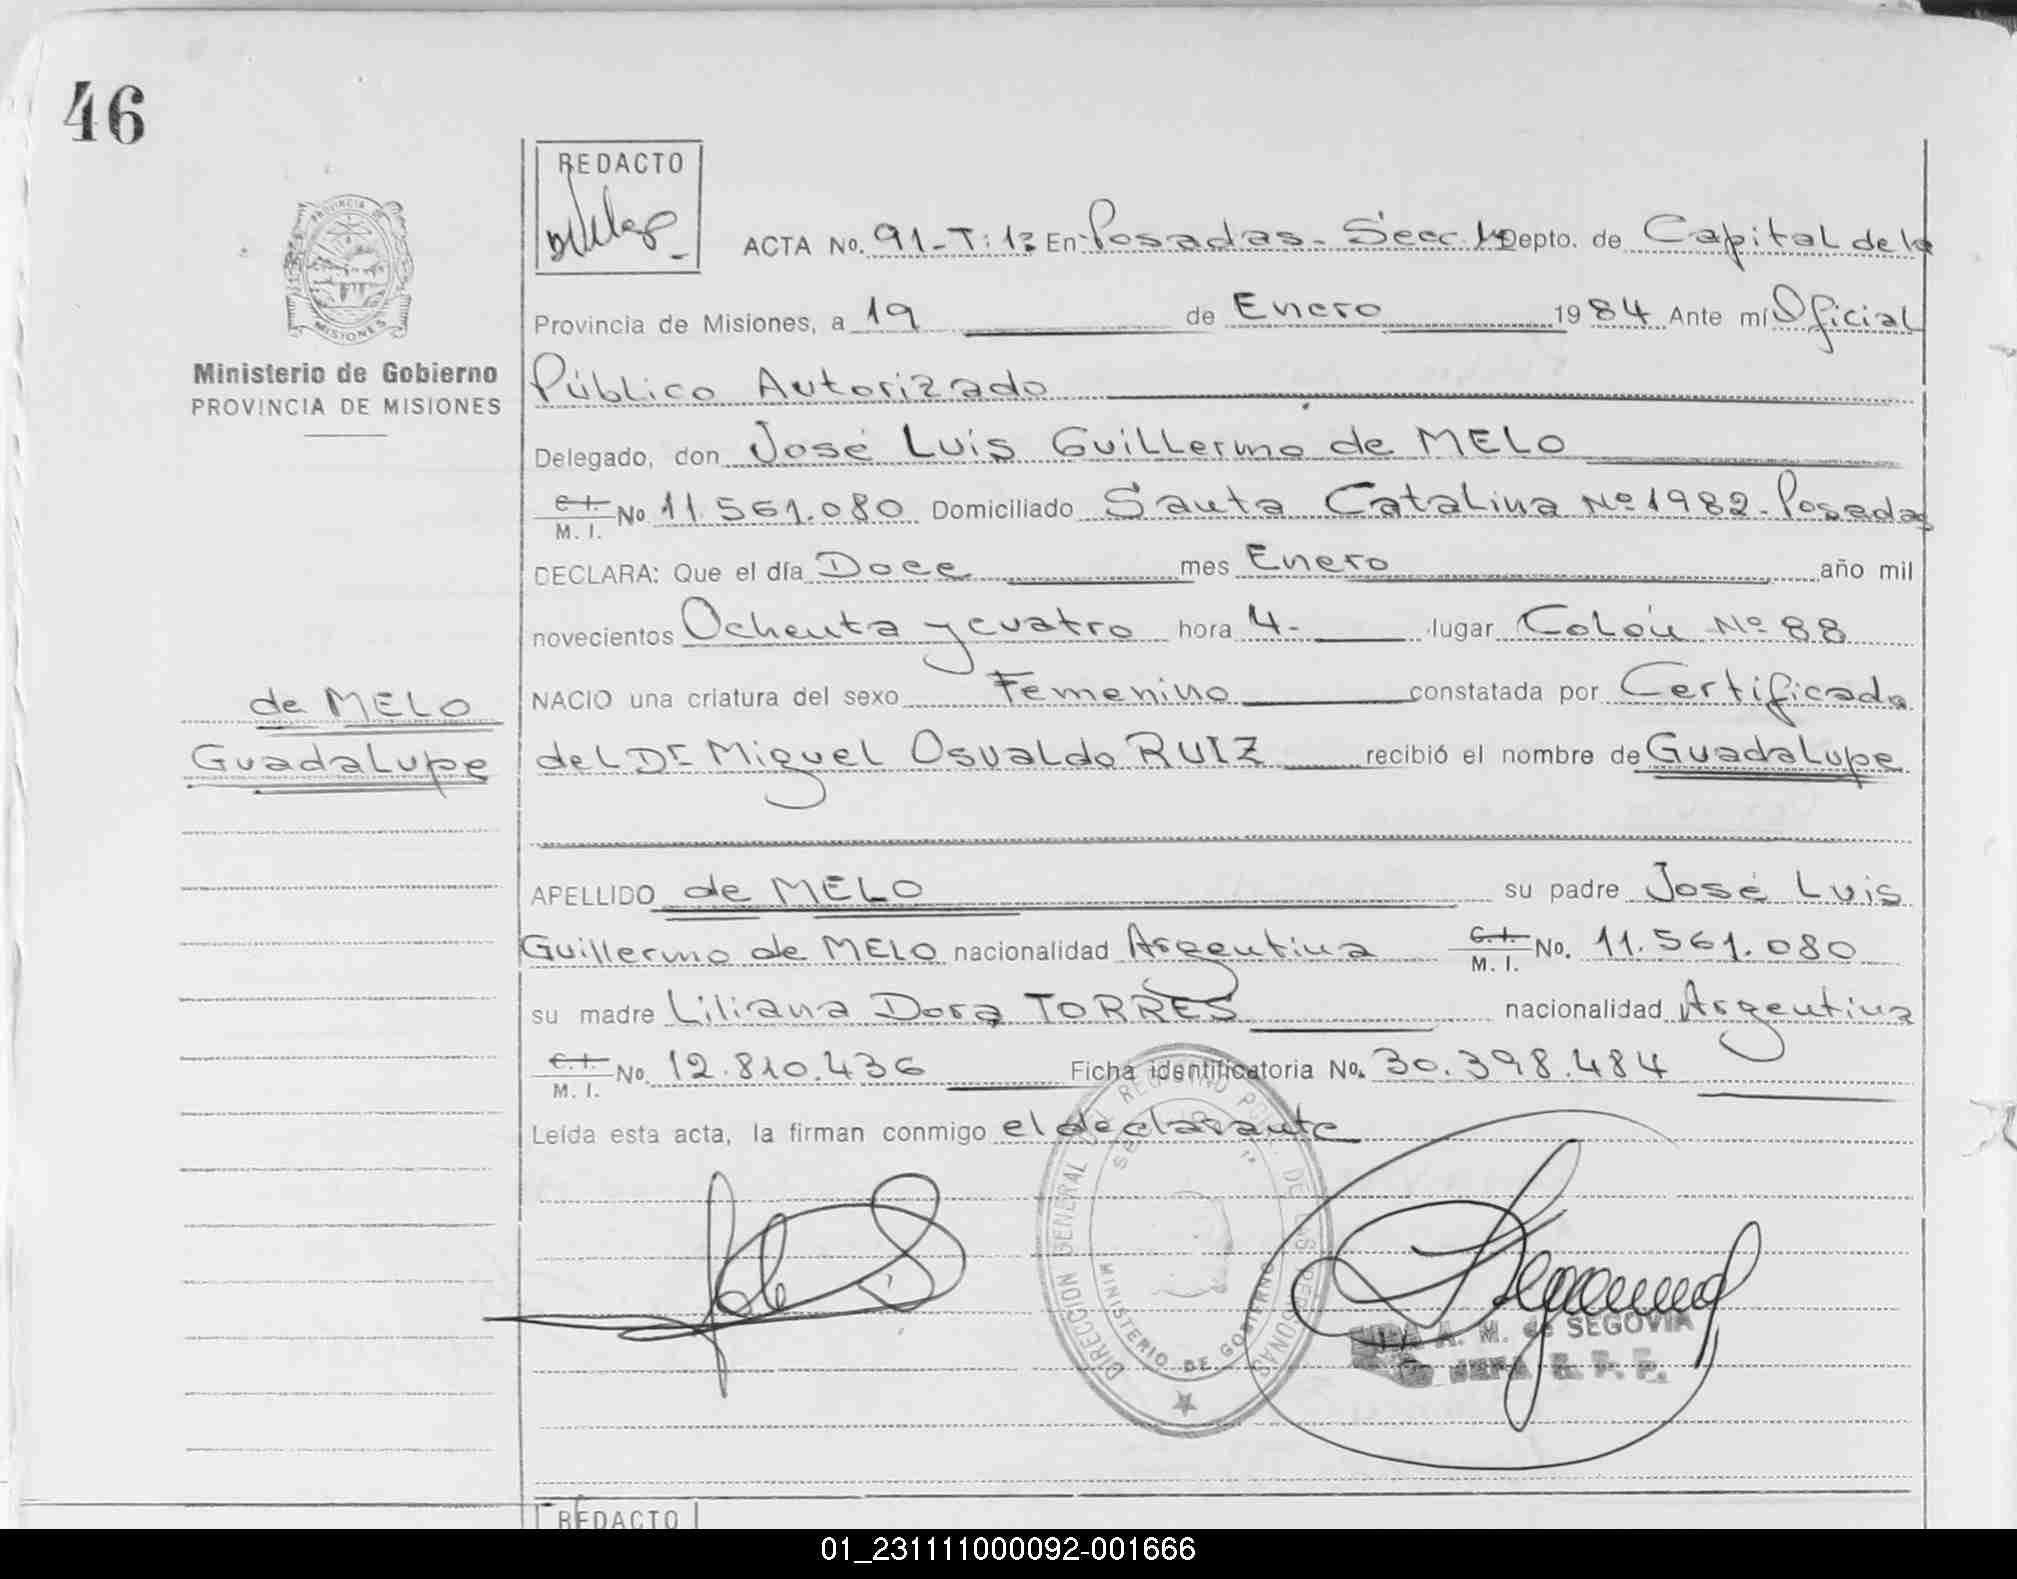 46
REDACTO
PROVINCIA DE
MISIONES
Ministerio de Gobierno
PROVINCIA DE MISIONES
ACTA No. 91-T:1: En Posadas - Secc. 1ª Depto. de Capital de la
Provincia de Misiones, a 19 de Enero 1984 Ante mí Oficial
Público Autorizado
Delegado, don José Luis Guillermo de MELO
C.I. M.I. No 11.561.080 Domiciliado Santa Catalina Nº 1982 - Posadas
DECLARA: Que el día Doce mes Enero año mil
novecientos Ochenta y cuatro hora 4.- lugar Colón Nº 88
NACIO una criatura del sexo Femenino constatada por Certificado
del Dr Miguel Osvaldo RUIZ recibió el nombre de Guadalupe
de MELO
Guadalupe
APELLIDO de MELO su padre José Luis
Guillermo de MELO nacionalidad Argentina C.I. M.I. No. 11.561.080
su madre Liliana Dora TORRES nacionalidad Argentina
C.I. M.I. No. 12.810.436 Ficha identificatoria No. 30.398.484
Leída esta acta, la firman conmigo el declarante
DIRECCION GENERAL DEL REGISTRO PCIAL. DE LAS PERSONAS
MINISTERIO DE GOBIERNO
A. M. de SEGOVIA
JEFA R. P. P.
REDACTO
01_231111000092-001666